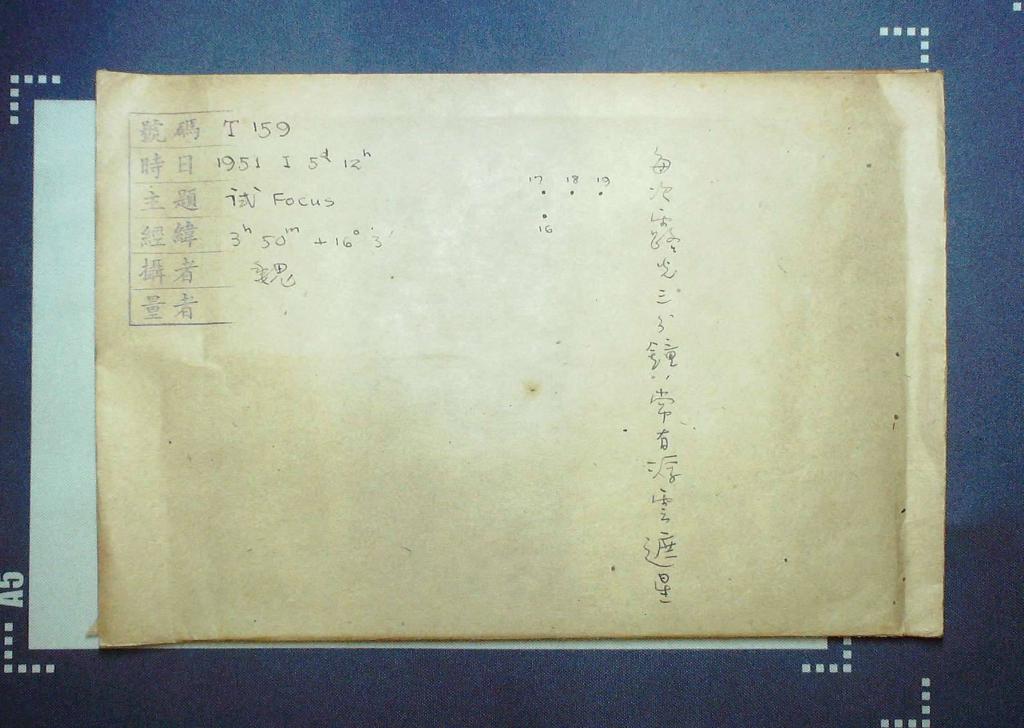 號碼 T 159
時日 1951 I 5ᵈ 12ʰ
主題 试 Focus
經緯 3ʰ 50ᵐ +16° 3′
攝者 魏
量者
17 18 19
16
每次露光三分鐘，常有浮雲遮星
A5